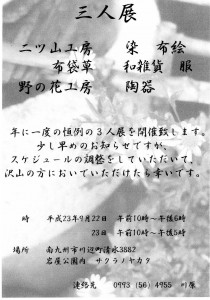 三人展
二ツ山工房 染 布絵
布袋草 和雑貨 服
野の花工房 陶器
年に一度の恒例の3人展を開催致します。
少し早めのお知らせですが、
スケジュールの調整をしていただいて、
沢山の方においでいただけたら幸いです。
時 平成23年9月22日 午前10時～午後6時
23日 午前10時～午後5時
場所 南九州市川辺町清水3882
岩屋公園内 サクラノヤカタ
連絡先 0993 (56) 4955